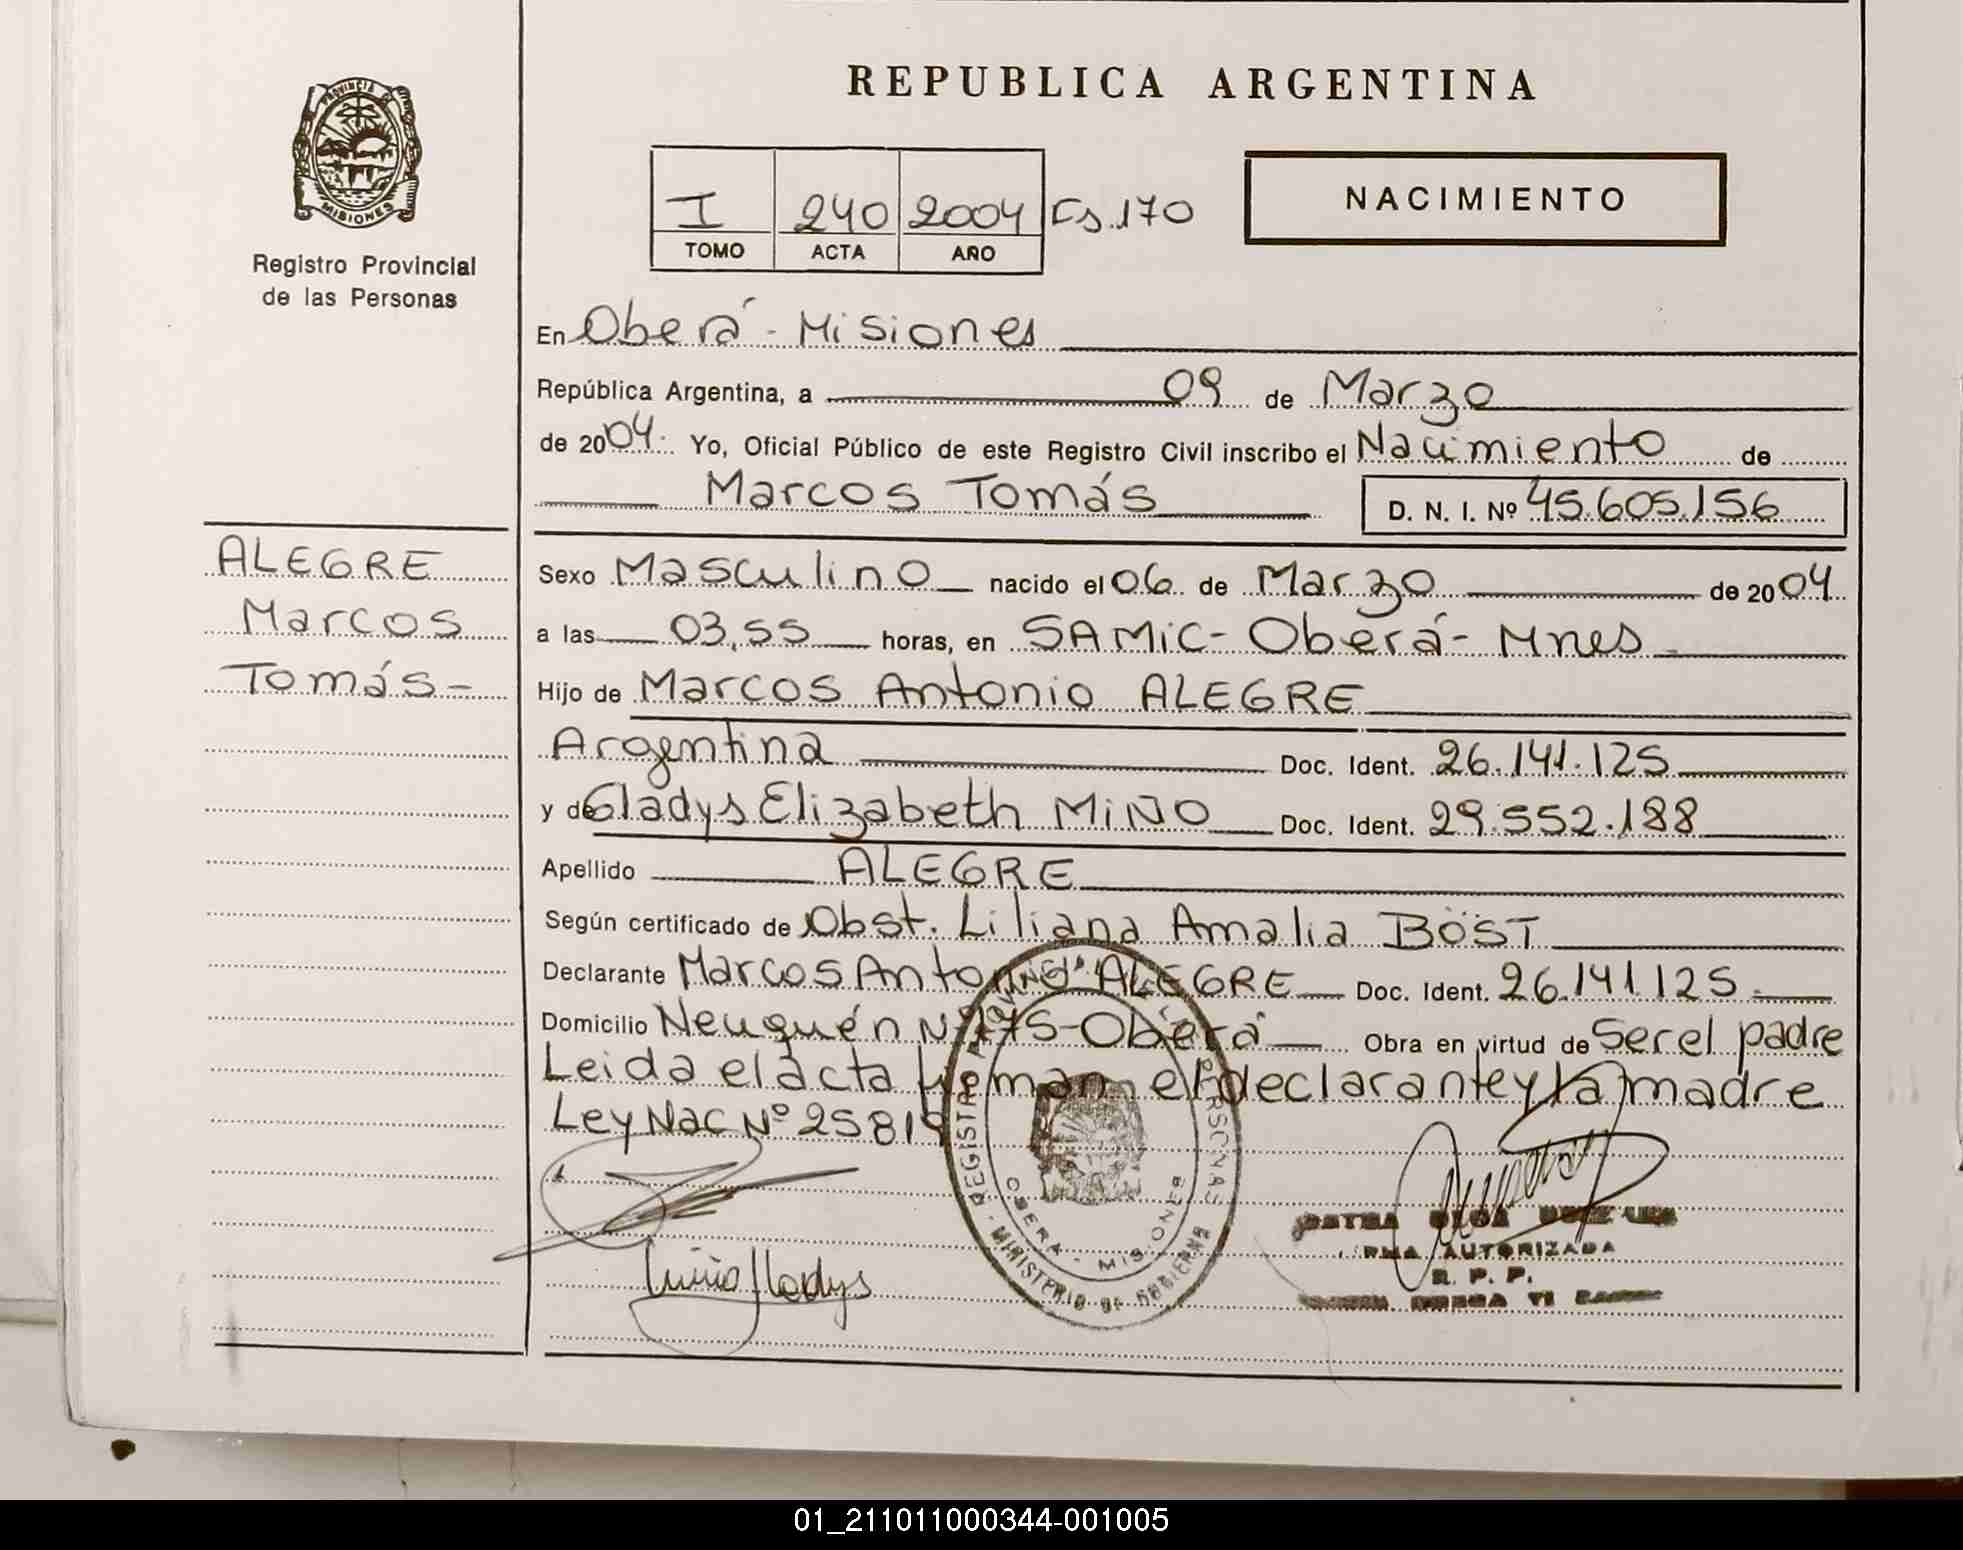 REPUBLICA ARGENTINA
PROVINCIA DE
MISIONES
Registro Provincial
de las Personas
I 240 2004 Fs.170
TOMO ACTA AÑO
NACIMIENTO
En Oberá - Misiones
República Argentina, a 09 de Marzo
de 2004. Yo, Oficial Público de este Registro Civil inscribo el Nacimiento de
Marcos Tomás D. N. I. Nº 45.605.156
ALEGRE
Marcos
Tomás -
Sexo Masculino nacido el 06 de Marzo de 2004
a las 03,55 horas, en SAMIC - Oberá - Mnes
Hijo de Marcos Antonio ALEGRE
Argentina Doc. Ident. 26.141.125
y de Gladys Elizabeth MIÑO Doc. Ident. 29.552.188
Apellido ALEGRE
Según certificado de Obst. Liliana Amalia BÖST
Declarante Marcos Antonio ALEGRE Doc. Ident. 26.141.125.
Domicilio Neuquén Nº 175 - Oberá Obra en virtud de Ser el padre
Leida el acta firman el declarante y la madre
Ley Nac Nº 25819
REGISTRO PERSONAS
OBERA - MISIONES
MINISTERIO DE GOBIERNO
Miño Gladys
OLGA
FIRMA AUTORIZADA
R. P. P.
01_211011000344-001005